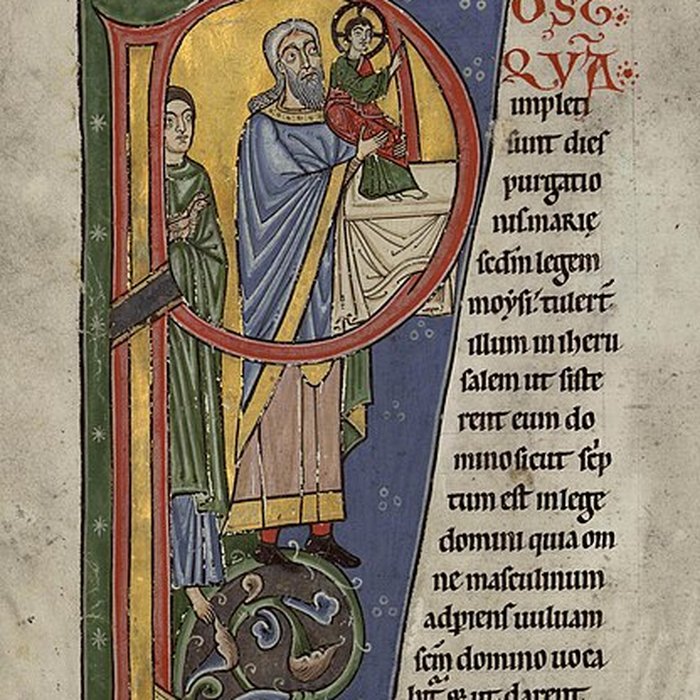 POST
QVĀ
impleti
sunt dies
purgatio
nis marię
scd̄m legem
moysi; tulert̄
illum in iheru
salem ut siste
rent eum do
mino sicut sc̄p
tum est in lege
domini quia om
ne masculinum
adpiens uuluam
sc̄m domino uoca
bit̄ &amp; ut darent